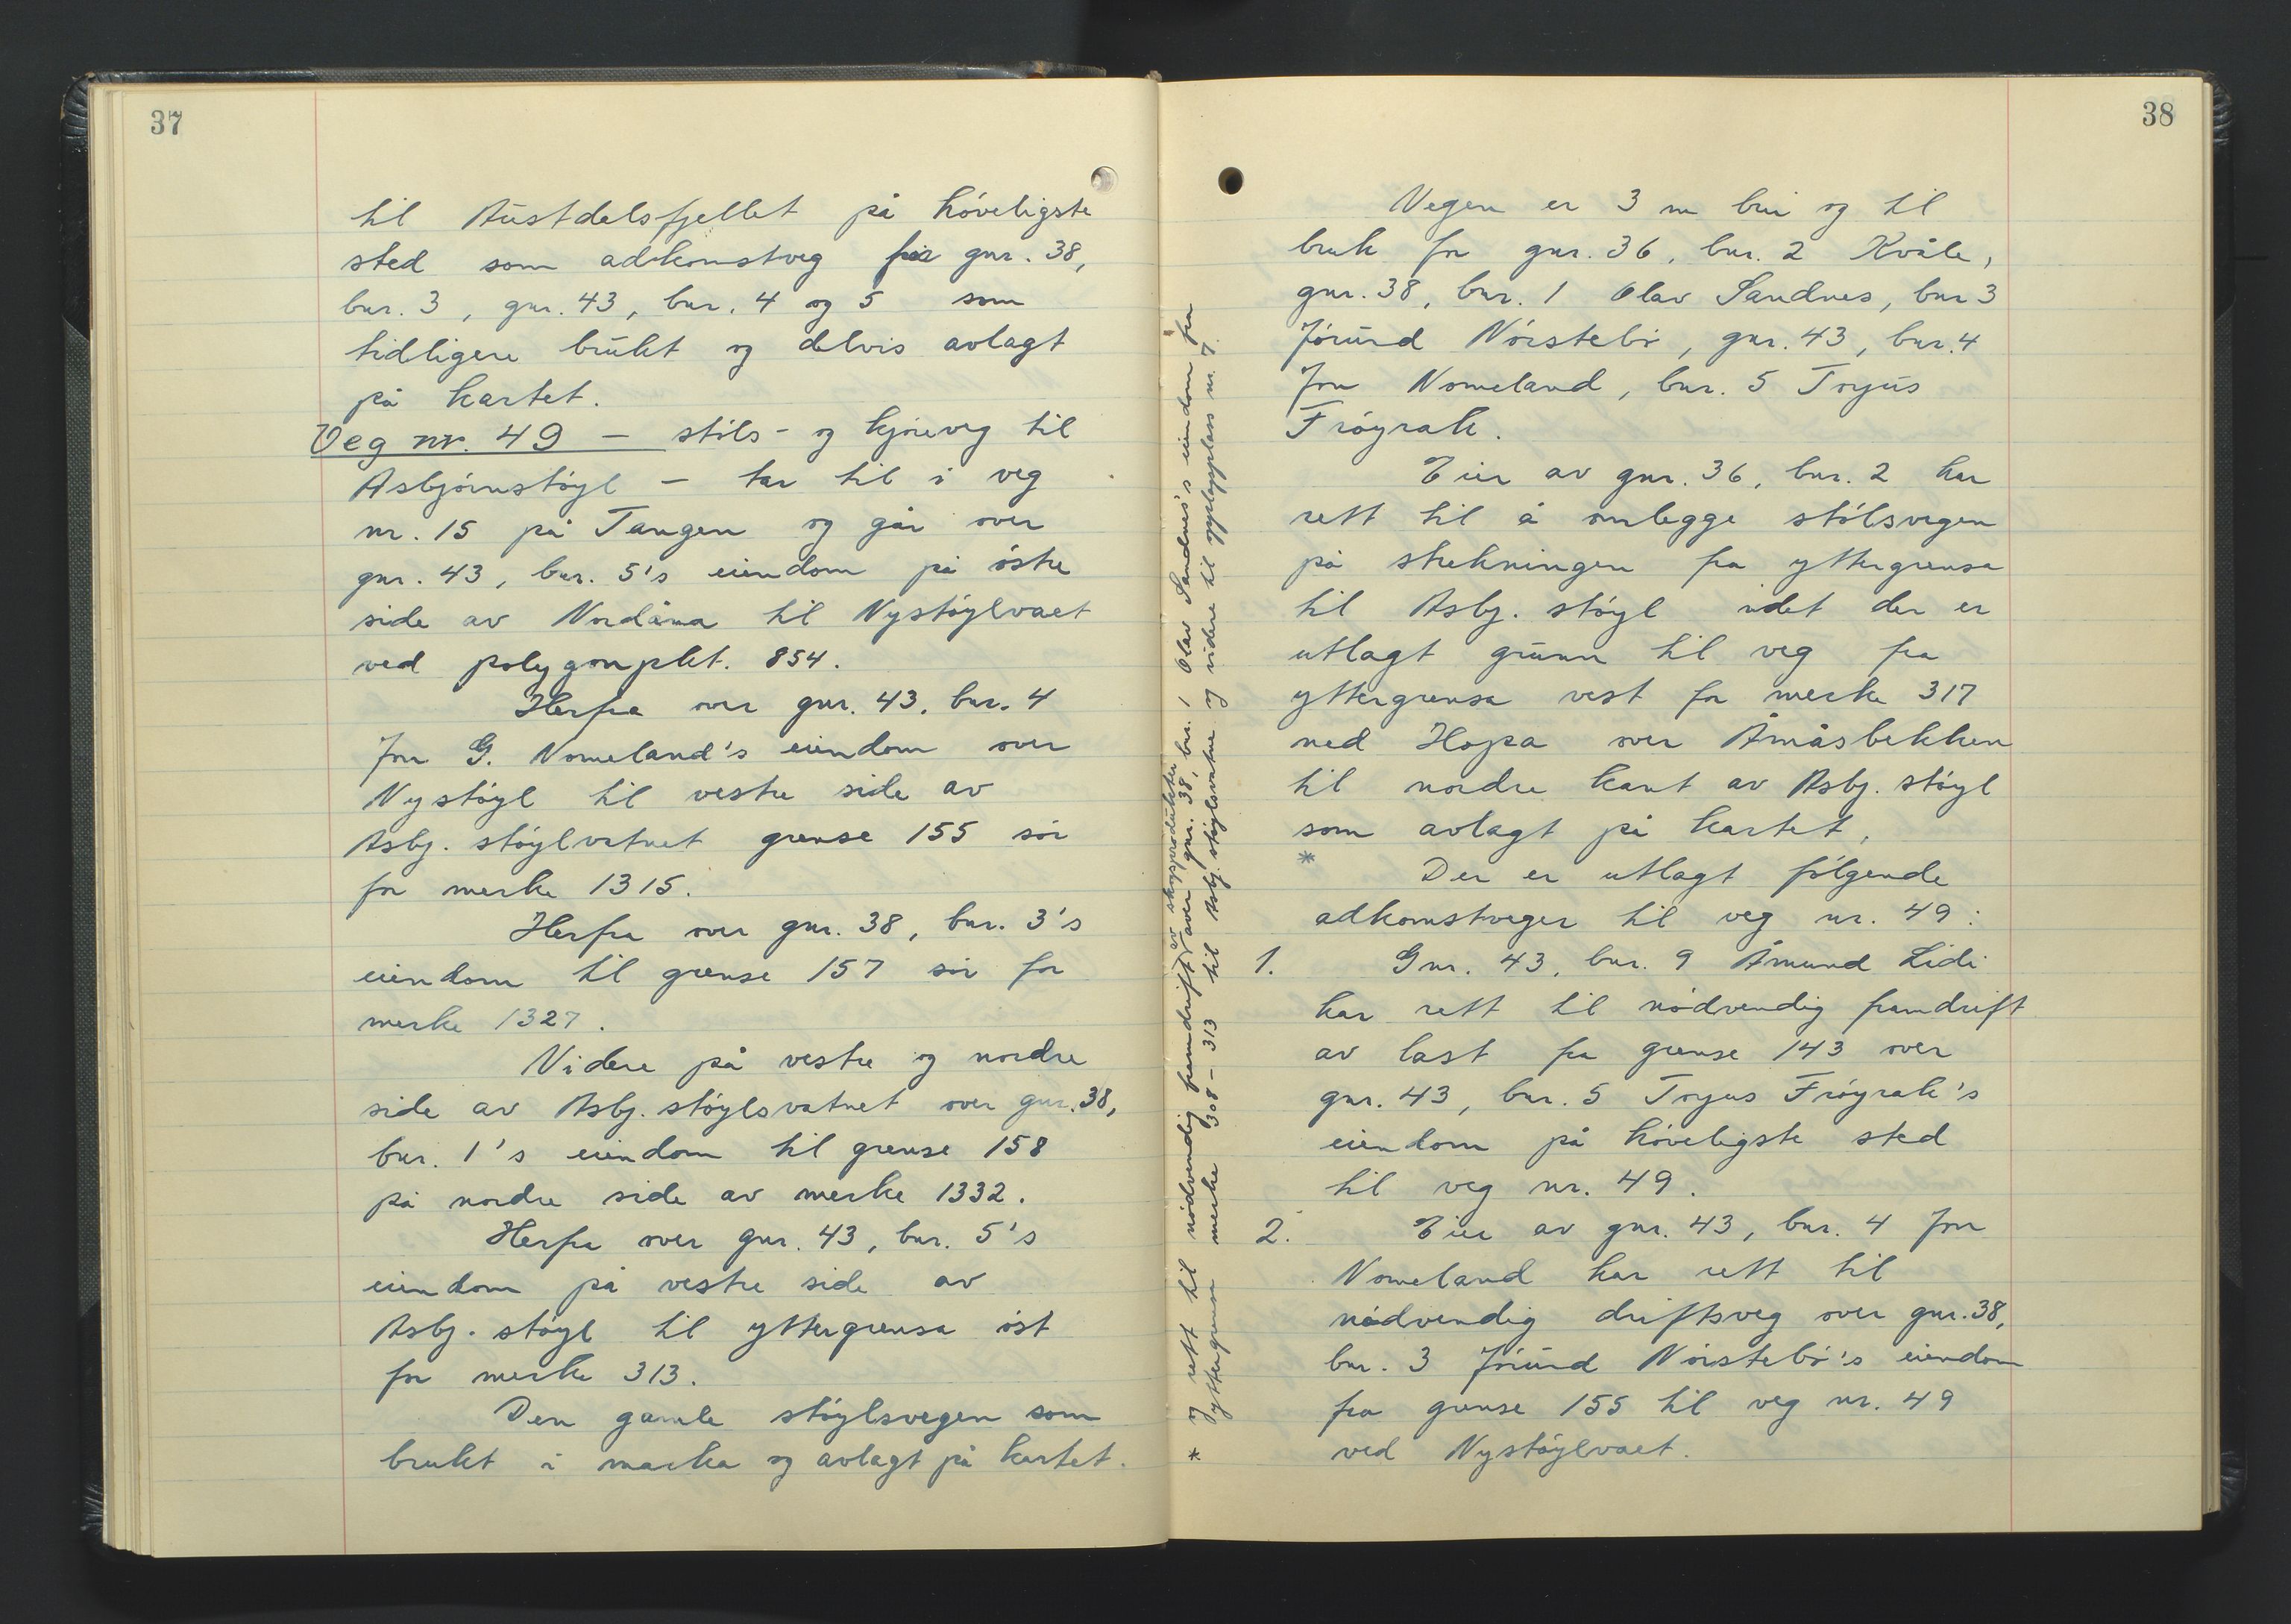 37
til Austdalsfjellet på høveligste
sted som adkomstveg for gnr. 38,
bnr. 3, gnr. 43, bnr. 4 og 5 som
tidligere brukt og delvis avlagt
på kartet.
Veg nr. 49 – støls- og kjøreveg til
Asbjørnstøyl – tar til i veg
nr. 15 på Tangen og går over
gnr. 43, bnr. 5's eiendom på østre
side av Nordåma til Nystøylvaet
ved polygonpkt. 854.
Herfra over gnr. 43, bnr. 4
Jon G. Nomeland's eiendom over
Nystøyl til vestre side av
Asbj. støylvatnet grense 155 sør
for merke 1315.
Herfra over gnr. 38, bnr. 3's
eiendom til grense 157 sør for
merke 1327.
Videre på vestre og nordre
side av Asbj. støylsvatnet over gnr. 38,
bnr. 1's eiendom til grense 158
på nordre side av merke 1332.
Herfra over gnr. 43, bnr. 5's
eiendom på vestre side av
Asbj. støyl til yttergrensa øst
for merke 313.
Den gamle støylsvegen som
brukt i marka og avlagt på kartet.
38
Vegen er 3 m brei og til
bruk for gnr. 36, bnr. 2 Kvåle,
gnr. 38, bnr. 1 Olav Sandnes, bnr 3
Jørund Nørstebø, gnr. 43, bnr. 4
Jon Nomeland, bnr. 5 Torjus
Frøyrak.
Eier av gnr. 36, bnr. 2 har
rett til å omlegge stølsvegen
på strekningen fra yttergrensa
til Asbj. støyl idet der er
utlagt grunn til veg fra
yttergrensa vest for merke 317
ned Hopa over Åmåsbekken
til nordre kant av Asbj. støyl
som avlagt på kartet,
*
Der er utlagt følgende
adkomstveger til veg nr. 49:
1. Gnr. 43, bnr. 9 Åmund Lidi
har rett til nødvendig framdrift
av last fra grense 143 over
gnr. 43, bnr. 5 Torjus Frøyrak's
eiendom på høveligste sted
til veg nr. 49.
2. Eier av gnr. 43, bnr. 4 Jon
Nomeland har rett til
nødvendig driftsveg over gnr. 38,
bnr. 3 Jørund Nørstebø's eiendom
fra grense 155 til veg nr. 49
ved Nystøylvaet.
* og rett til nødvendig framdrift av skogsprodukter over gnr. 38, bnr. 1 Olav Sandnes's eiendom fra
yttergrensa merke 308 – 313 til Asbj. støylsvatne og videre til opplagsplass nr. 7.